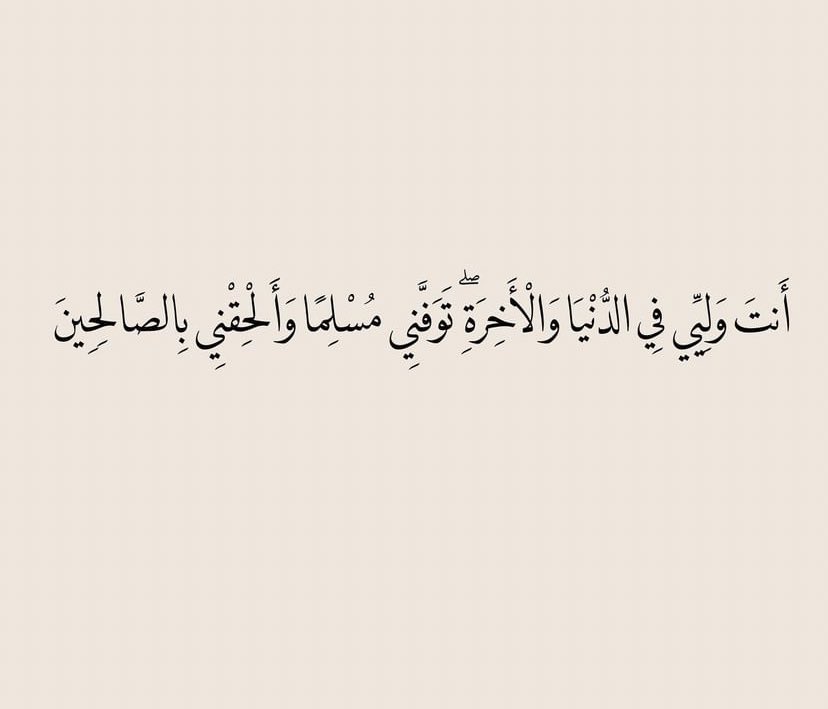 أَنتَ وَلِيِّي فِي الدُّنْيَا وَالْأَخِرَةِ ۖ تَوَفَّنِي مُسْلِمًا وَأَلْحِقْنِي بِالصَّالِحِينَ